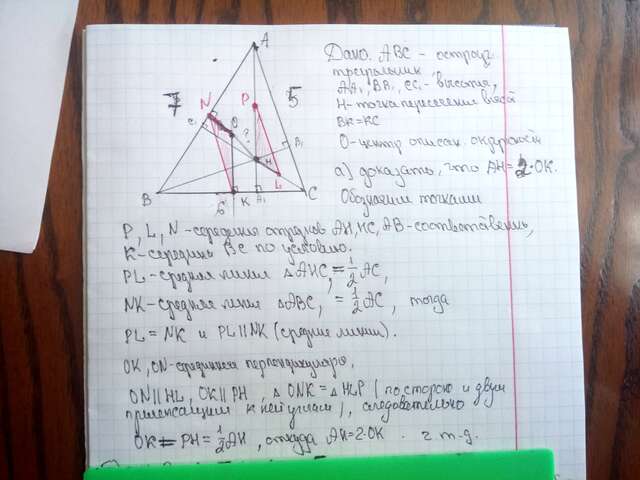 Дано: ABC – остроуг.
треугольник
AA₁, BB₁, CC₁ – высоты,
H – точка пересечения высот
BK = KC
O – центр описан. окружности
а) доказать, что AH = 2·OK.
Обозначим точками
P, L, N – середины отрезков AH, HC, AB – соответственно,
K – середина BC по условию.
PL – средняя линия △AHC = ½ AC,
NK – средняя линия △ABC, = ½ AC, тогда
PL = NK и PL || NK (средние линии).
OK, ON – серединные перпендикуляры,
ON || HL, OK || PH, △ONK = △HLP (по стороне и двум
прилежащим к ней углам), следовательно
OK = PH = ½ AH, откуда AH = 2·OK. ч.т.д.
A
B
C
N
P
O
H
L
K
A₁
B₁
C₁
7
5
6